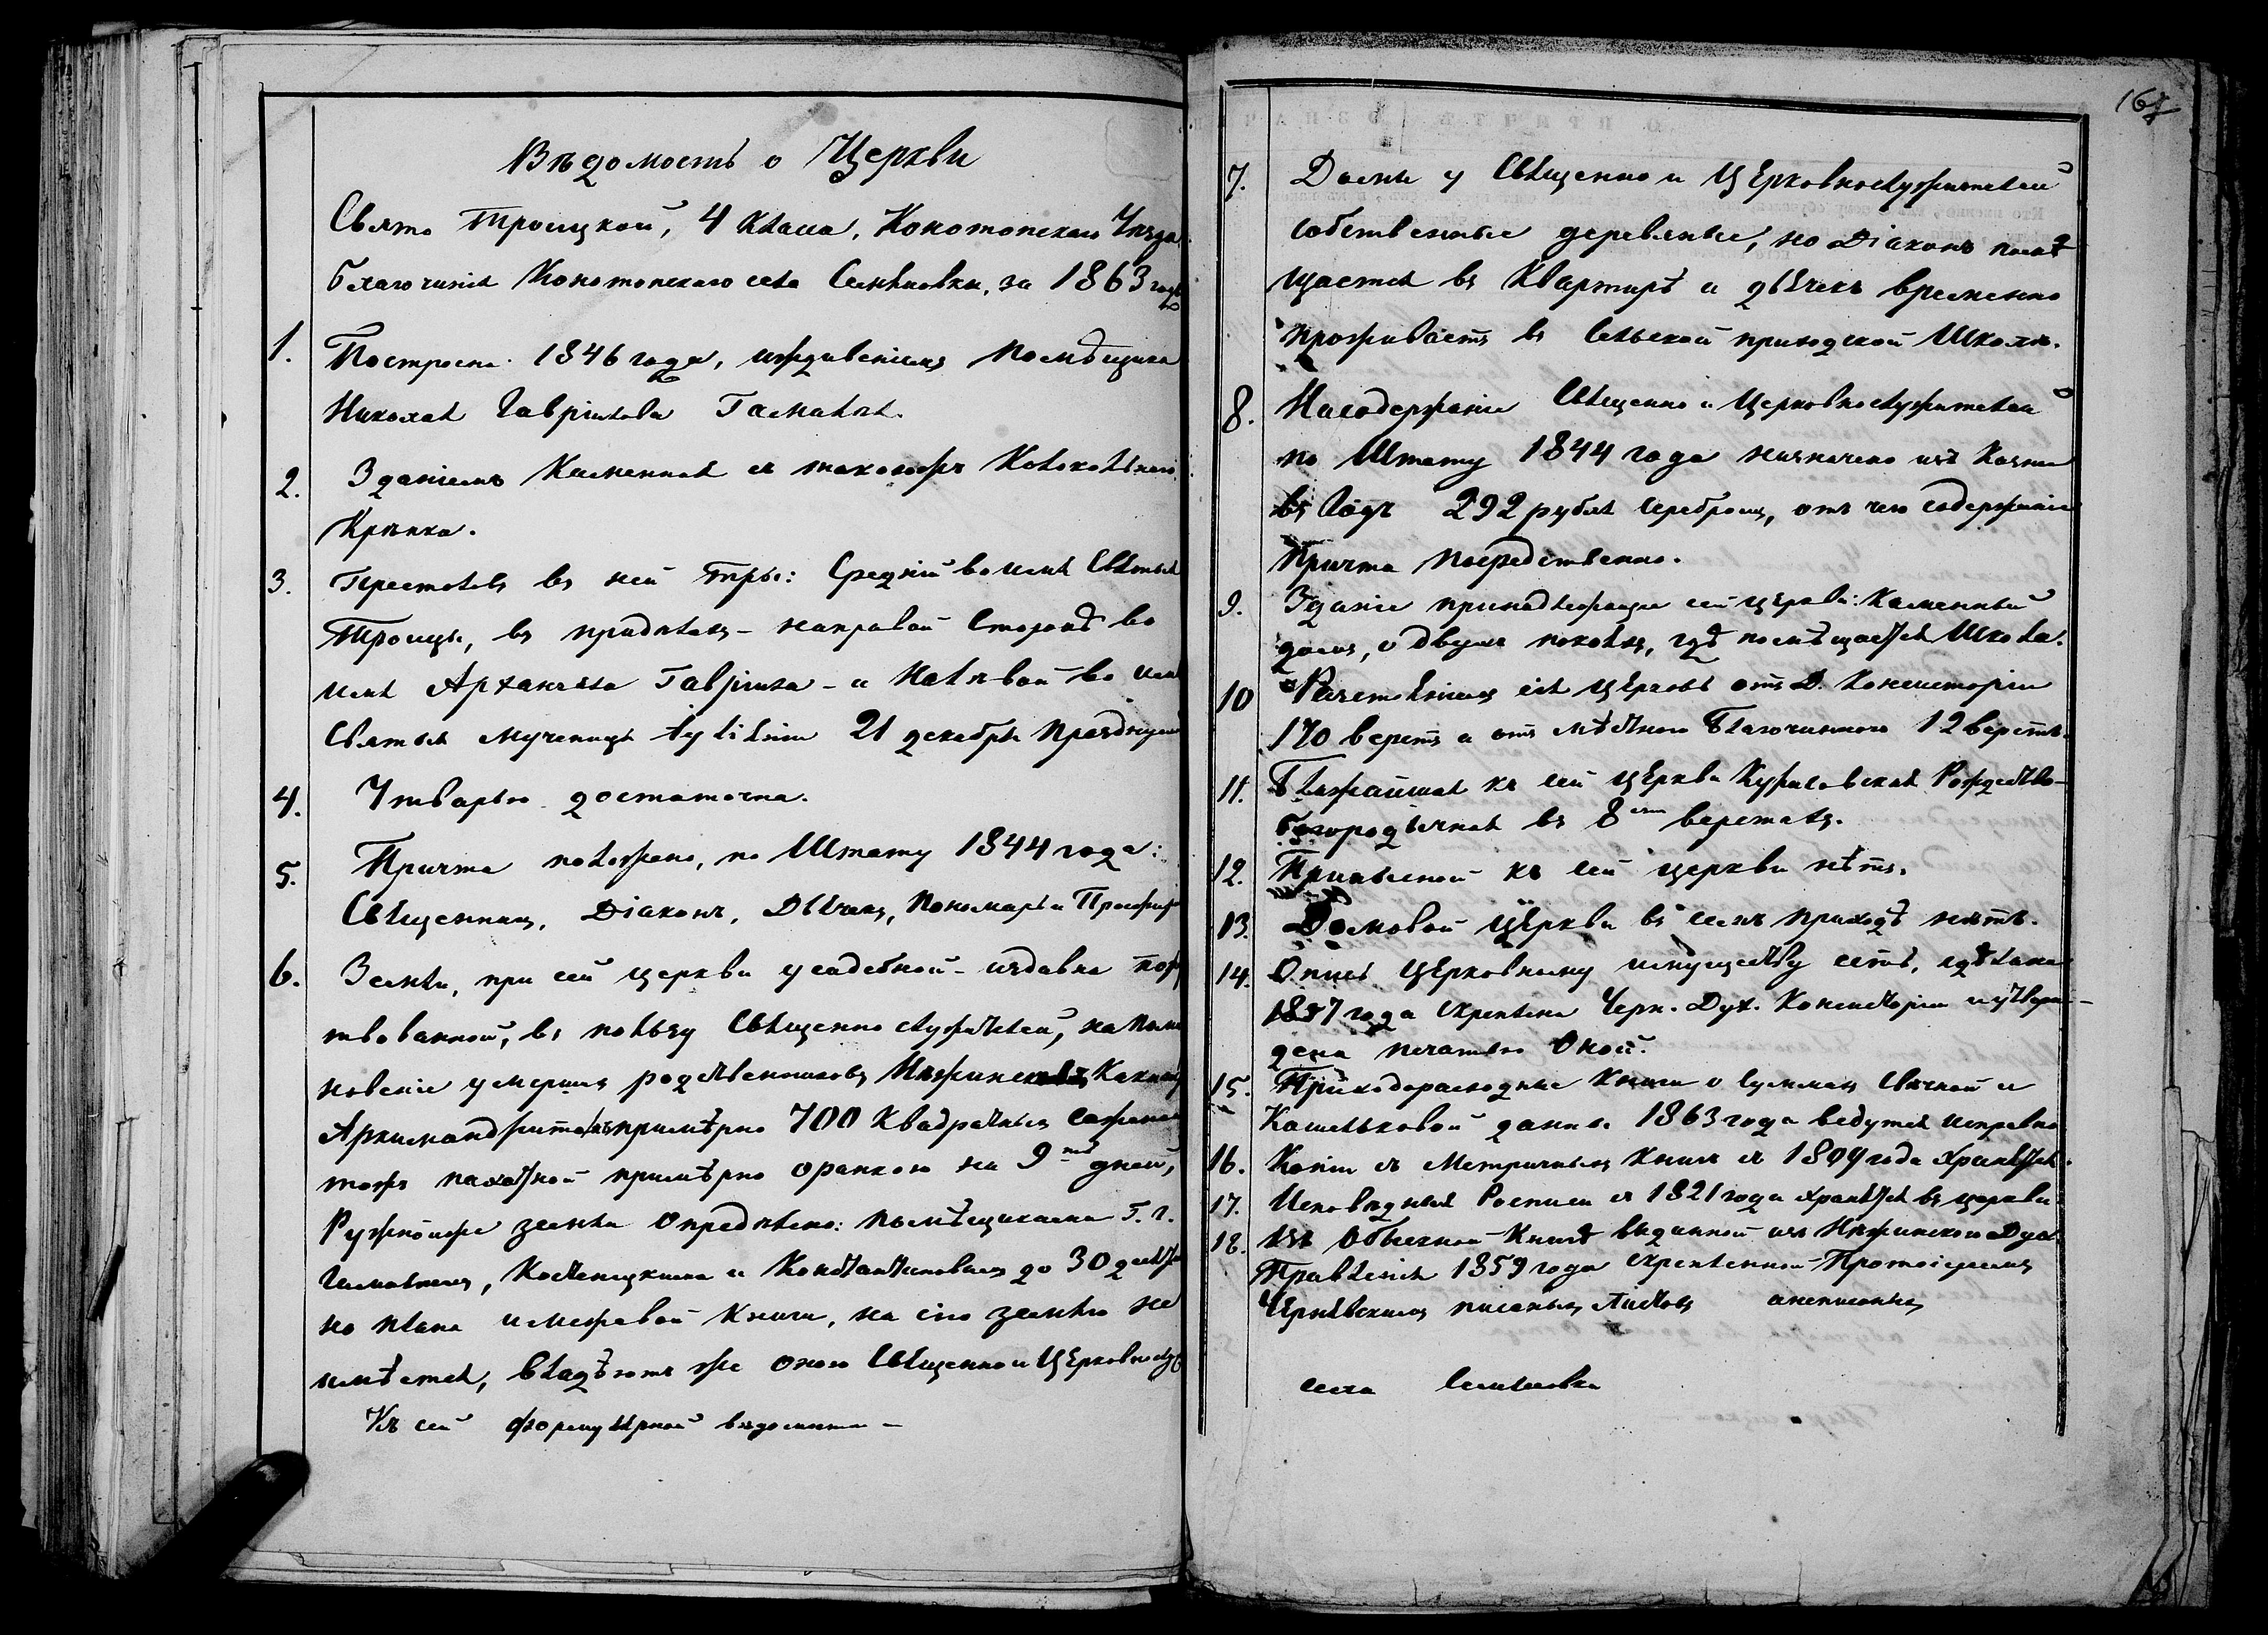 167
Вѣдомость о Церкви
Свято Троицкой, 4 класа, Конотопскаго Уѣзда
благочинія Конотопскаго села Семяновки, за 1863 годъ
1. Построена 1846 года, иждивеніемъ помѣщика
Николая Гавріилова Гамалѣя.
2. Зданіемъ Каменная съ таковоюжъ Колокольнею
Крѣпка.
3. Престоловъ въ ней три: Средній во имя Святыя
Троицы, въ придѣлахъ - направой сторонѣ во
имя Архангела Гавріила - и налѣвой во имя
Святыя мученицы Іуліаніи 21 декабря празднуемой
4. Утварью достаточна.
5. Причта положено, по Штату 1844 года:
Священникъ, Діаконъ, Дьячекъ, Пономарь и Просфир
6. Земли, при сей церкви усадебной - издавна пожер
твованной, въ пользу Священно служителей, на поми
новеніе умершихъ родственниковъ Нѣжинск
Архимандрита примѣрно 700 Квадратныхъ сажень
тожъ пахатной примѣрно оранкою на 9ть дней,
Ружнойже земли опредѣлено: помѣщиками Г. г.
Костенецкими и Константиновичъ до 30 десят
но плана имежевой книги, на сію землю не
имѣется, владѣютъ же оною Священно и Церковнослуж
Къ сей формулярной вѣдомости -
7. Домы у Священно и Церковнослужителей
собственные деревяные, но Діаконъ помѣ
щается въ Квартирѣ и дьячекъ временно
проживаетъ въ Сельской приходской Школѣ.
8. Насодержаніе Священно и Церковнослужителей
по Штату 1844 года назначено изъ Казны
въ годъ 292 рубля серебромъ, отъ чего содержаніе
Причта посредственно.
9. Зданіе принадлежащее сей церкви: Каменный
домъ, о двухъ покояхъ, гдѣ помѣщается Школа.
10 Разстояніемъ сія церковь отъ Д. Консисторіи
170 верстъ а отъ мѣстного Благочинного 12 верстъ.
11. Ближайшая къ сей церкви Рождество-
богородичная въ 8ми верстахъ.
12. Приписной къ сей церкви нѣтъ.
13. Домовой Церкви въ семъ приходѣ нѣтъ.
14. Опись церковному имуществу есть, здѣлана
1857 года скрѣплена Черн. Дух. Консисторіи и утверж-
дена печатью оной.
15. Приходорасходные Книги о суммах Свѣчной и
Кошельковой даны 1863 года ведутся исправно
16. Копіи съ Метричныхъ книгъ съ 1809 года хранятся.
17. Исповѣдныя Росписи съ 1821 года хранятся въ церкви
18. Въ Обыскной Книгѣ выданной изъ Нѣжинского Дух.
Правленія 1859 года скрѣпленной Протоіереемъ
писаныхъ листовъ анеписаныхъ
села Семяновка